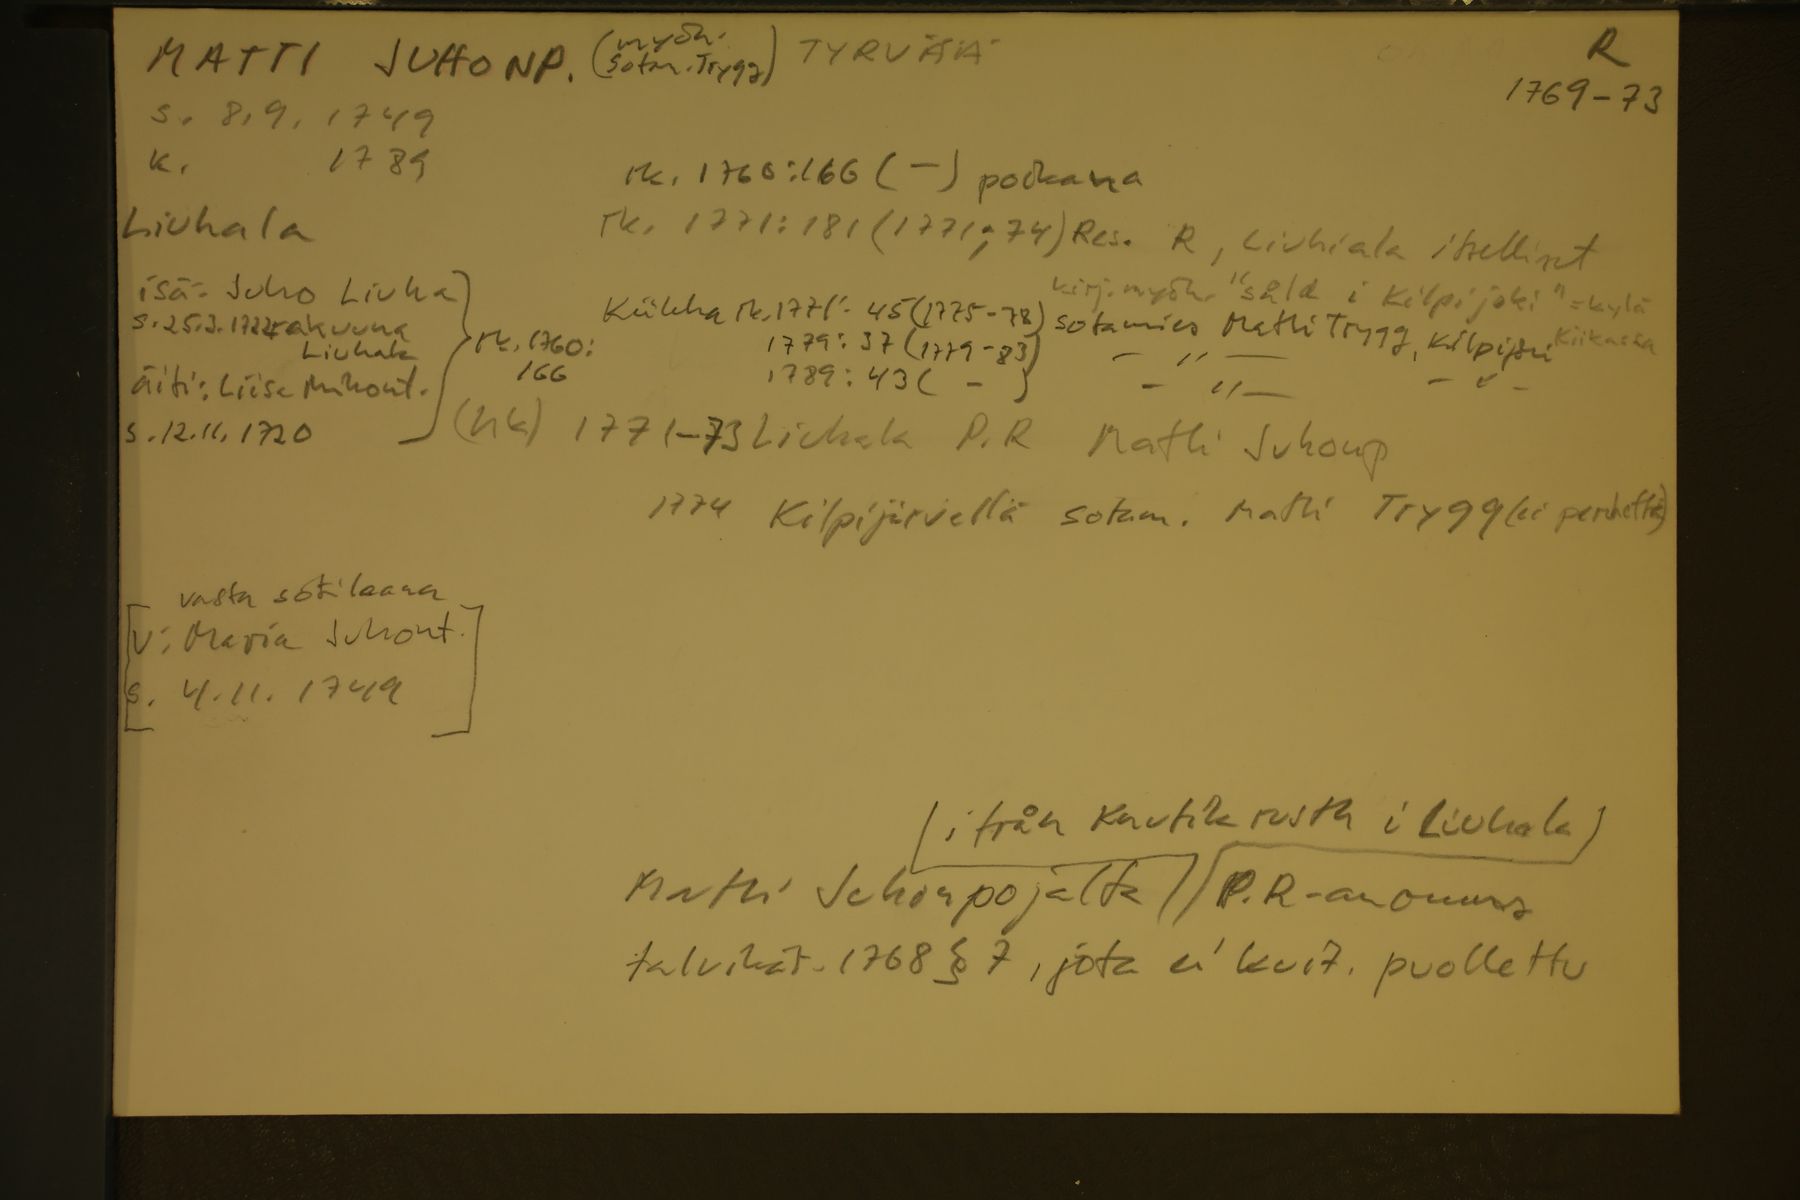 MATTI JUHONP. (myöh. sotam. Trygg) TYRVÄÄ R
1769-73
s. 8.9. 1749
k. 1789
rk. 1760:166 (-) poikana
Liuhala
rk. 1771:181 (1771;74) Res. R, Liuhiala itselliset
kirj. myöh. "såld i Kilpijoki" = kylä Kiikassa
isä: Juho Liuha
s. 25.2. 1722 rakuuna
Liuhala
äiti: Liisa Mikont.
s. 12.11. 1720
rk. 1760:
166
Kiikka rk. 1771: 45 (1775-78) sotamies Matti Trygg, Kilpijoki
1779: 37 (1779-83) - " - - " -
1789: 43 ( - ) - " - - " -
(hk) 1771-73 Liuhala P.R Matti Juhonp
1774 Kilpijärvellä sotam. Matti Trygg (ei perhettä)
vasta sotilaana
[V: Maria Juhont.
s. 4.11. 1749]
(ifrån Knutila rusth i Liuhala)
Matti Juhonpojalta P.R-anomus
talvikär. 1768 § 7, jota ei kuit. puollettu